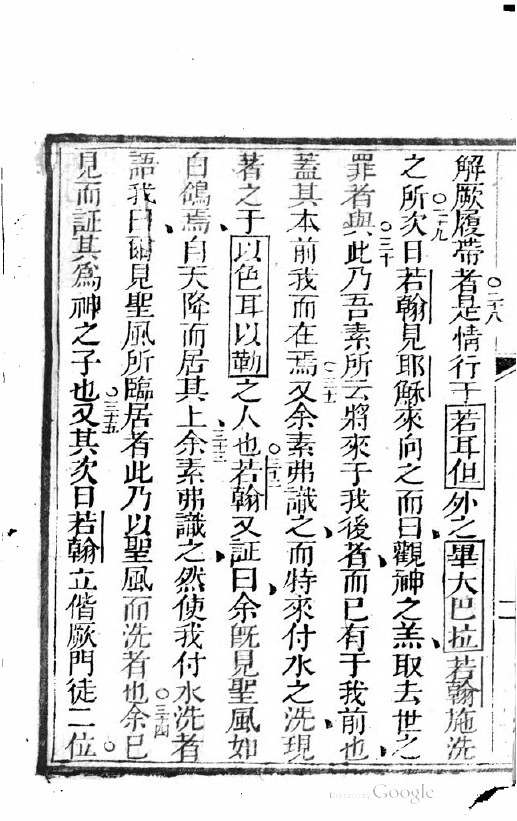 解厥履帶者○二十八是情行于若耳但外之畢大巴拉若翰施洗
之所○二十九次日若翰見耶穌來向之而曰觀神之羔取去世之
罪者與○三十此乃吾素所云將來于我後者而已有于我前也
蓋其本前我而在焉○三十一又余素弗識之而特來付水之洗現
著之于以色耳以勒之人也○三十二若翰又証曰余旣見聖風如
白鴿焉自天降而居其上○三十三余素弗識之然使我付水洗者
語我曰爾見聖風所臨居者此乃以聖風而洗者也○三十四余已
見而証其為神之子也○三十五又其次日若翰立偕厥門徒二位○
Digitized by Google